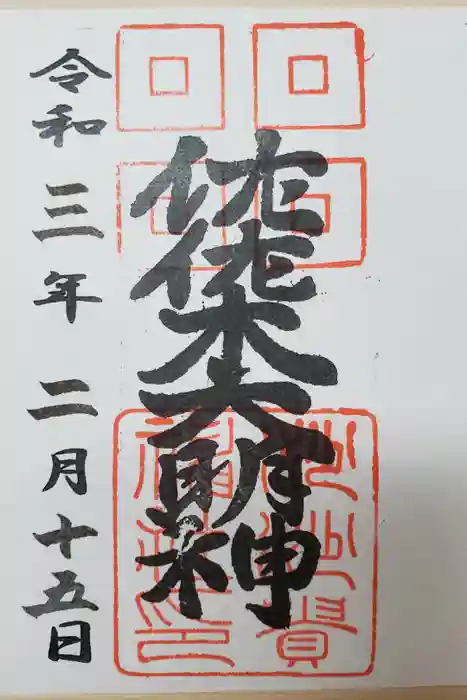 佐佐木大明神
令和三年二月十五日